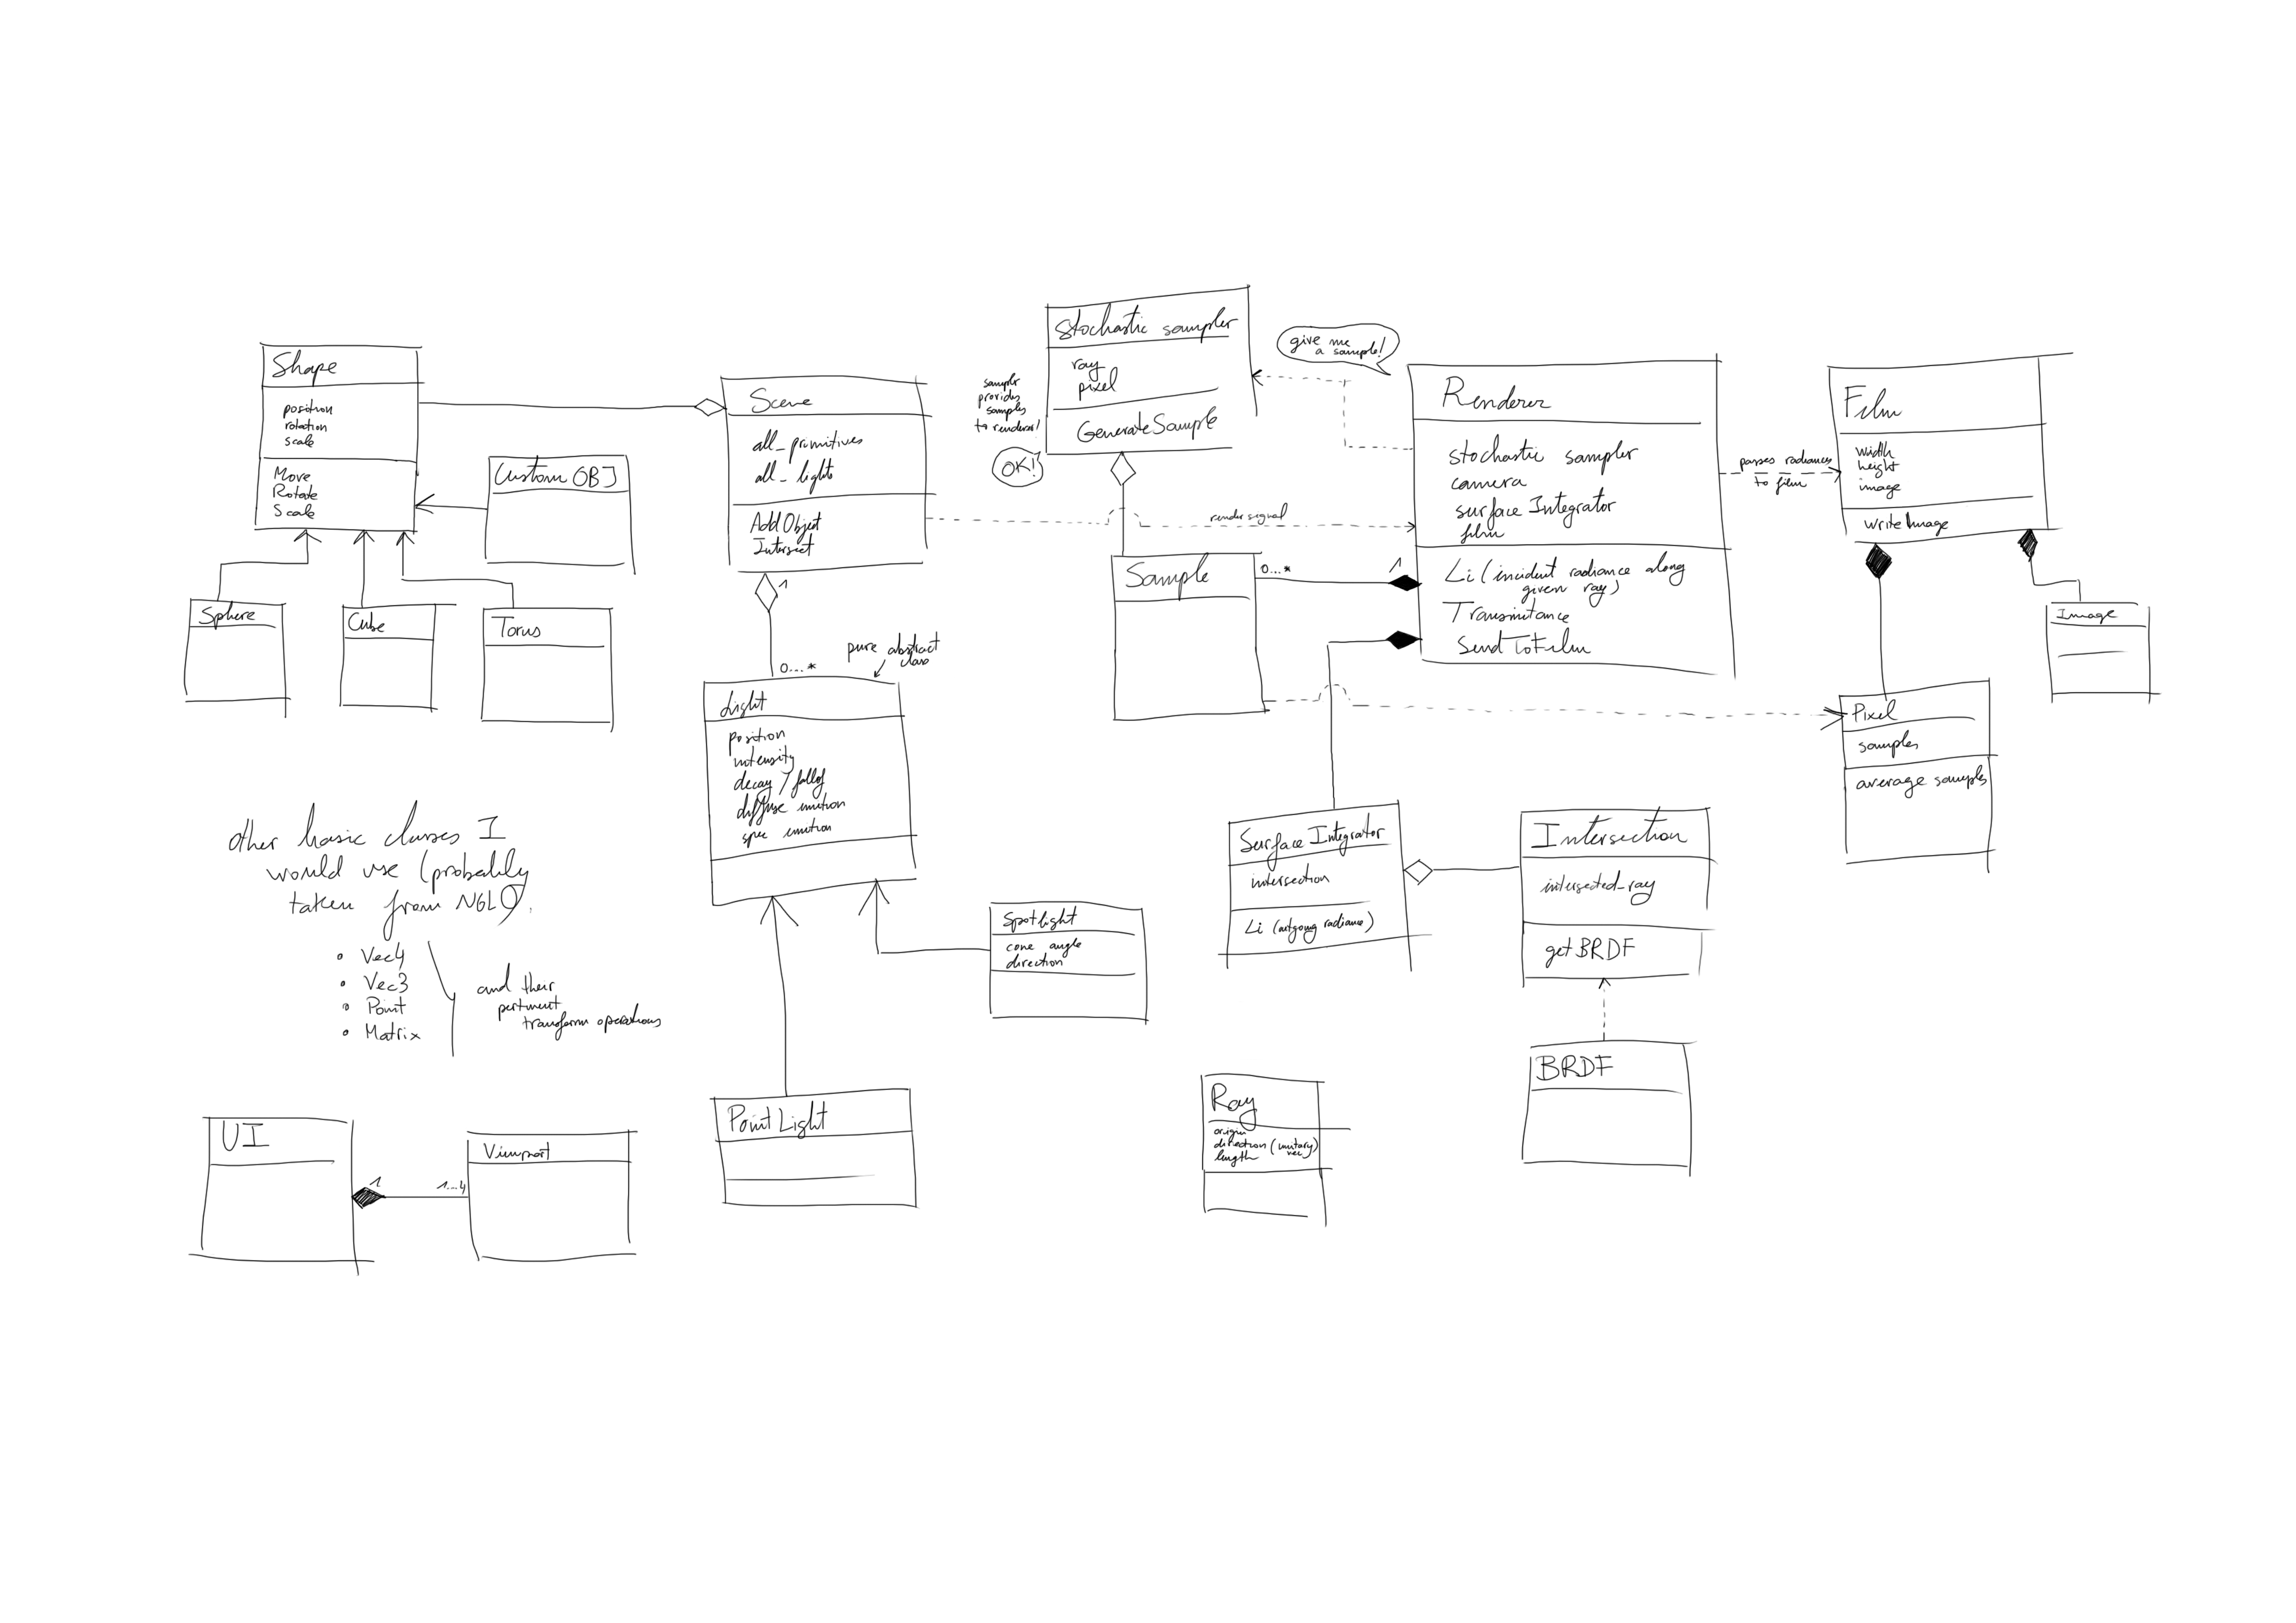 Shape
position
rotation
scale
Move
Rotate
Scale
Custom OBJ
Sphere
Cube
Torus
Scene
all_primitives
all_lights
AddObject
Intersect
1
0...*
pure abstract
class
Light
position
intensity
decay / falloff
diffuse emition
spec emition
Spotlight
cone angle
direction
PointLight
Stochastic sampler
ray
pixel
GenerateSample
sampler
provides
samples
to renderer!
OK!
give me
a sample!
render signal
Sample
0...*
1
Renderer
stochastic sampler
camera
surface Integrator
film
Li (incident radiance along
given ray)
Transmitance
SendToFilm
passes radiances
to film
Film
width
height
image
writeImage
Image
Pixel
samples
average samples
Surface Integrator
intersection
Li (outgoing radiance)
Intersection
intersected_ray
getBRDF
BRDF
Ray
origin
direction (unitary
vec)
length
other basic classes I
would use (probably
taken from NGL).
• Vec4
• Vec3
• Point
• Matrix
and their
pertinent
transform operations
UI
1
1...4
Viewport